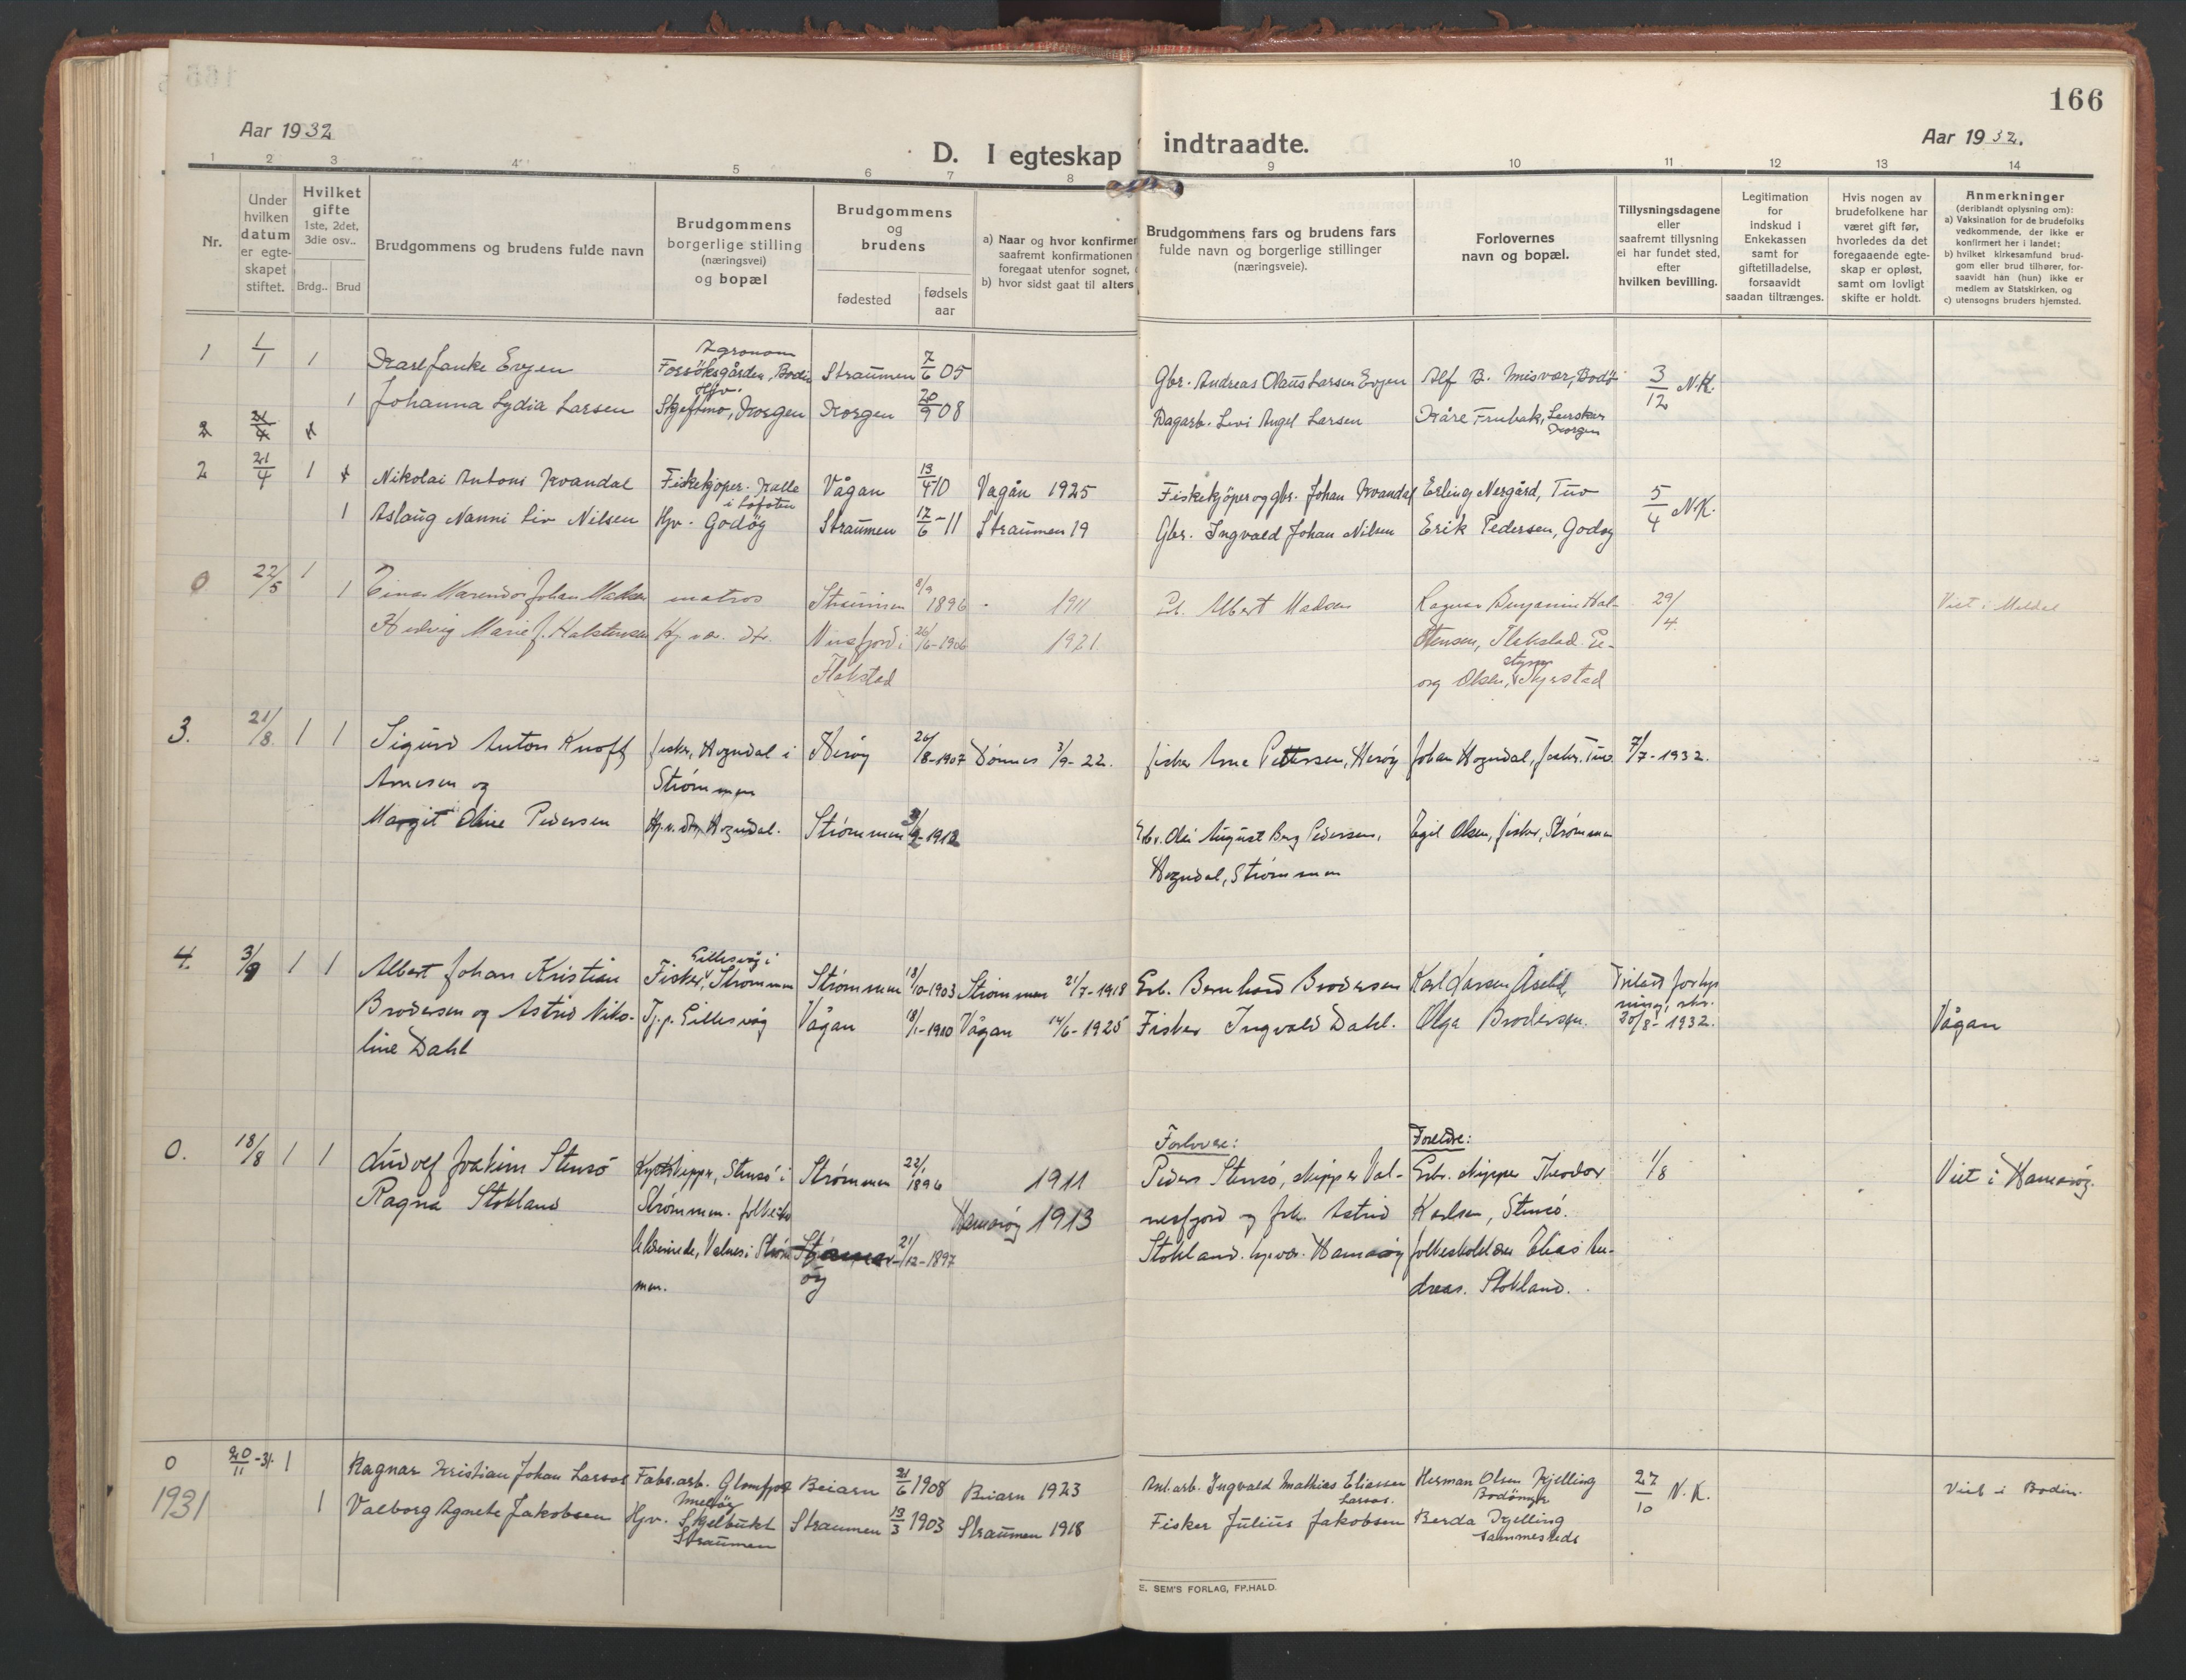 166
Aar 1932
D. I egteskap indtraadte.
Aar 1932.
1 2 3 4 5 6 7 8 9 10 11 12 13 14
Nr.
Under hvilken datum er egteskapet stiftet.
Hvilket gifte 1ste, 2det, 3die osv..
Brdg.. Brud
Brudgommens og brudens fulde navn
Brudgommens borgerlige stilling (næringsvei) og bopæl
Brudgommens og brudens
fødested
fødsels aar
a) Naar og hvor konfirmer
saafremt konfirmationen
foregaat utenfor sognet,
b) hvor sidst gaat til alters
Brudgommens fars og brudens fars
fulde navn og borgerlige stillinger
(næringsveie).
Forlovernes
navn og bopæl.
Tillysningsdagene
eller
saafremt tillysning
ei har fundet sted,
efter
hvilken bevilling.
Legitimation
for
indskud i
Enkekassen
samt for
giftetilladelse,
forsaavidt
saadan tiltrænges.
Hvis nogen av
brudefolkene har
været gift før,
hvorledes da det
foregaaende egte-
skap er opløst,
samt om lovligt
skifte er holdt.
Anmerkninger
(deriblandt oplysning om):
a) Vaksination for de brudefolks
vedkommende, der ikke er
konfirmert her i landet;
b) hvilket kirkesamfund brud-
gom eller brud tilhører, for-
saavidt han (hun) ikke er
medlem av Statskirken, og
c) utensogns bruders hjemsted.
1 1/1 1 Karl Evjen Agronom Forsöksgården, Bodin Straumen 7/6 05 Gbr. Andreas Olaus Larsen Evjen Alf B. Misvær, Bodø 3/12 N.K.
1 Johanna Lydia Larsen Hjv. Korgen Korgen 20/9 08 Dagarb. Levi Angel Larsen Kåre Korgen
2 21/4
2 21/4 1 Nikolai Antoni Kvandal Fiskekjøper. Kalle i Lofoten Vågan 13/4-10 Vagån 1925 Fiskekjöper og gbr. Johan Kvandal Erling Nergård, Tuv 5/4 N.K.
1 Aslaug Nanni Liv Nilsen Hjv. Godøy Straumen 17/6-11 Straumen 19 Gbr. Ingvald Johan Nilsen Erik Pedersen, Godøy
0 22/5 1 1 Einar Johan Madsen matros Straumen 8/9 1896 1911 Albert Madsen Ragnar Benjamin Hal- 29/4
Hedvig Marie J. Halstensen Nusfjord i 26/6-1906 1921 stensen, Flakstad. Ge-
Flakstad org Olsen,
3. 21/8. 1 1 Sigurd Anton Knoff fisker, Hogndal i Herøy 26/8-1907 Dønnes 3/9-22. fisker Arne Pettersen, Herøy Johan Hogndal, fisker, Tuv. 7/7-1932.
Arnesen og Strømmen
Margit Oline Pedersen Hogndal. Strømmen 1912 Olai August Berg Pedersen, Egil Olsen, fisker, Strømmen
Hogndal, Strømmen
4. 3/9 1 1 Albert Johan Kristian Gillesvåg i Fisker, Strømmen Strømmen 18/10-1903 Strømmen 21/7-1918 Erb. Bernhard Brodersen Karl Larsen
Brodersen og Astrid Niko- Gillesvåg Vågan 18/1-1910 Vågan 14/6-1925 Fisker Ingvald Dahl. Olga Brodersen. 30/8-1932. Vågan
line Dahl
0. 18/8 1 1 Ludolf Joakim Stensö Stensö i Strømmen 22/1 1896 1911 Forlovere: Foreldre: 1/8 Viet i Hamarøy.
Ragna Stokland Strømmen. Hamarøy 1913 Peder Stensö, skipper Val- Erb. skipper Theodor
nesfjord og frk. Astrid Karlsen, Stensö.
Valnes i Strøm- 21/12-1897 Stokland. Hamarøy Elias An-
men. øy dreas. Stokland.
0 20/11-31. 1 Ragnar Kristian Johan Larsos Fabr.arb. Glomfjord Beiarn 21/6 1908 Beiarn 1923 Anl.arb. Ingvald Mathias Eliassen Larsos. Herman Olsen Kjelling 27/10 N.K. Viet i Bodin.
1931 1 Valborg Agnete Jakobsen Hjv. Skjelbukt Straumen Straumen 13/3 1903 Straumen 1918 Fisker Julius Jakobsen Berda Kjelling sammesteds
E. SEM'S FORLAG, FR.HALD.